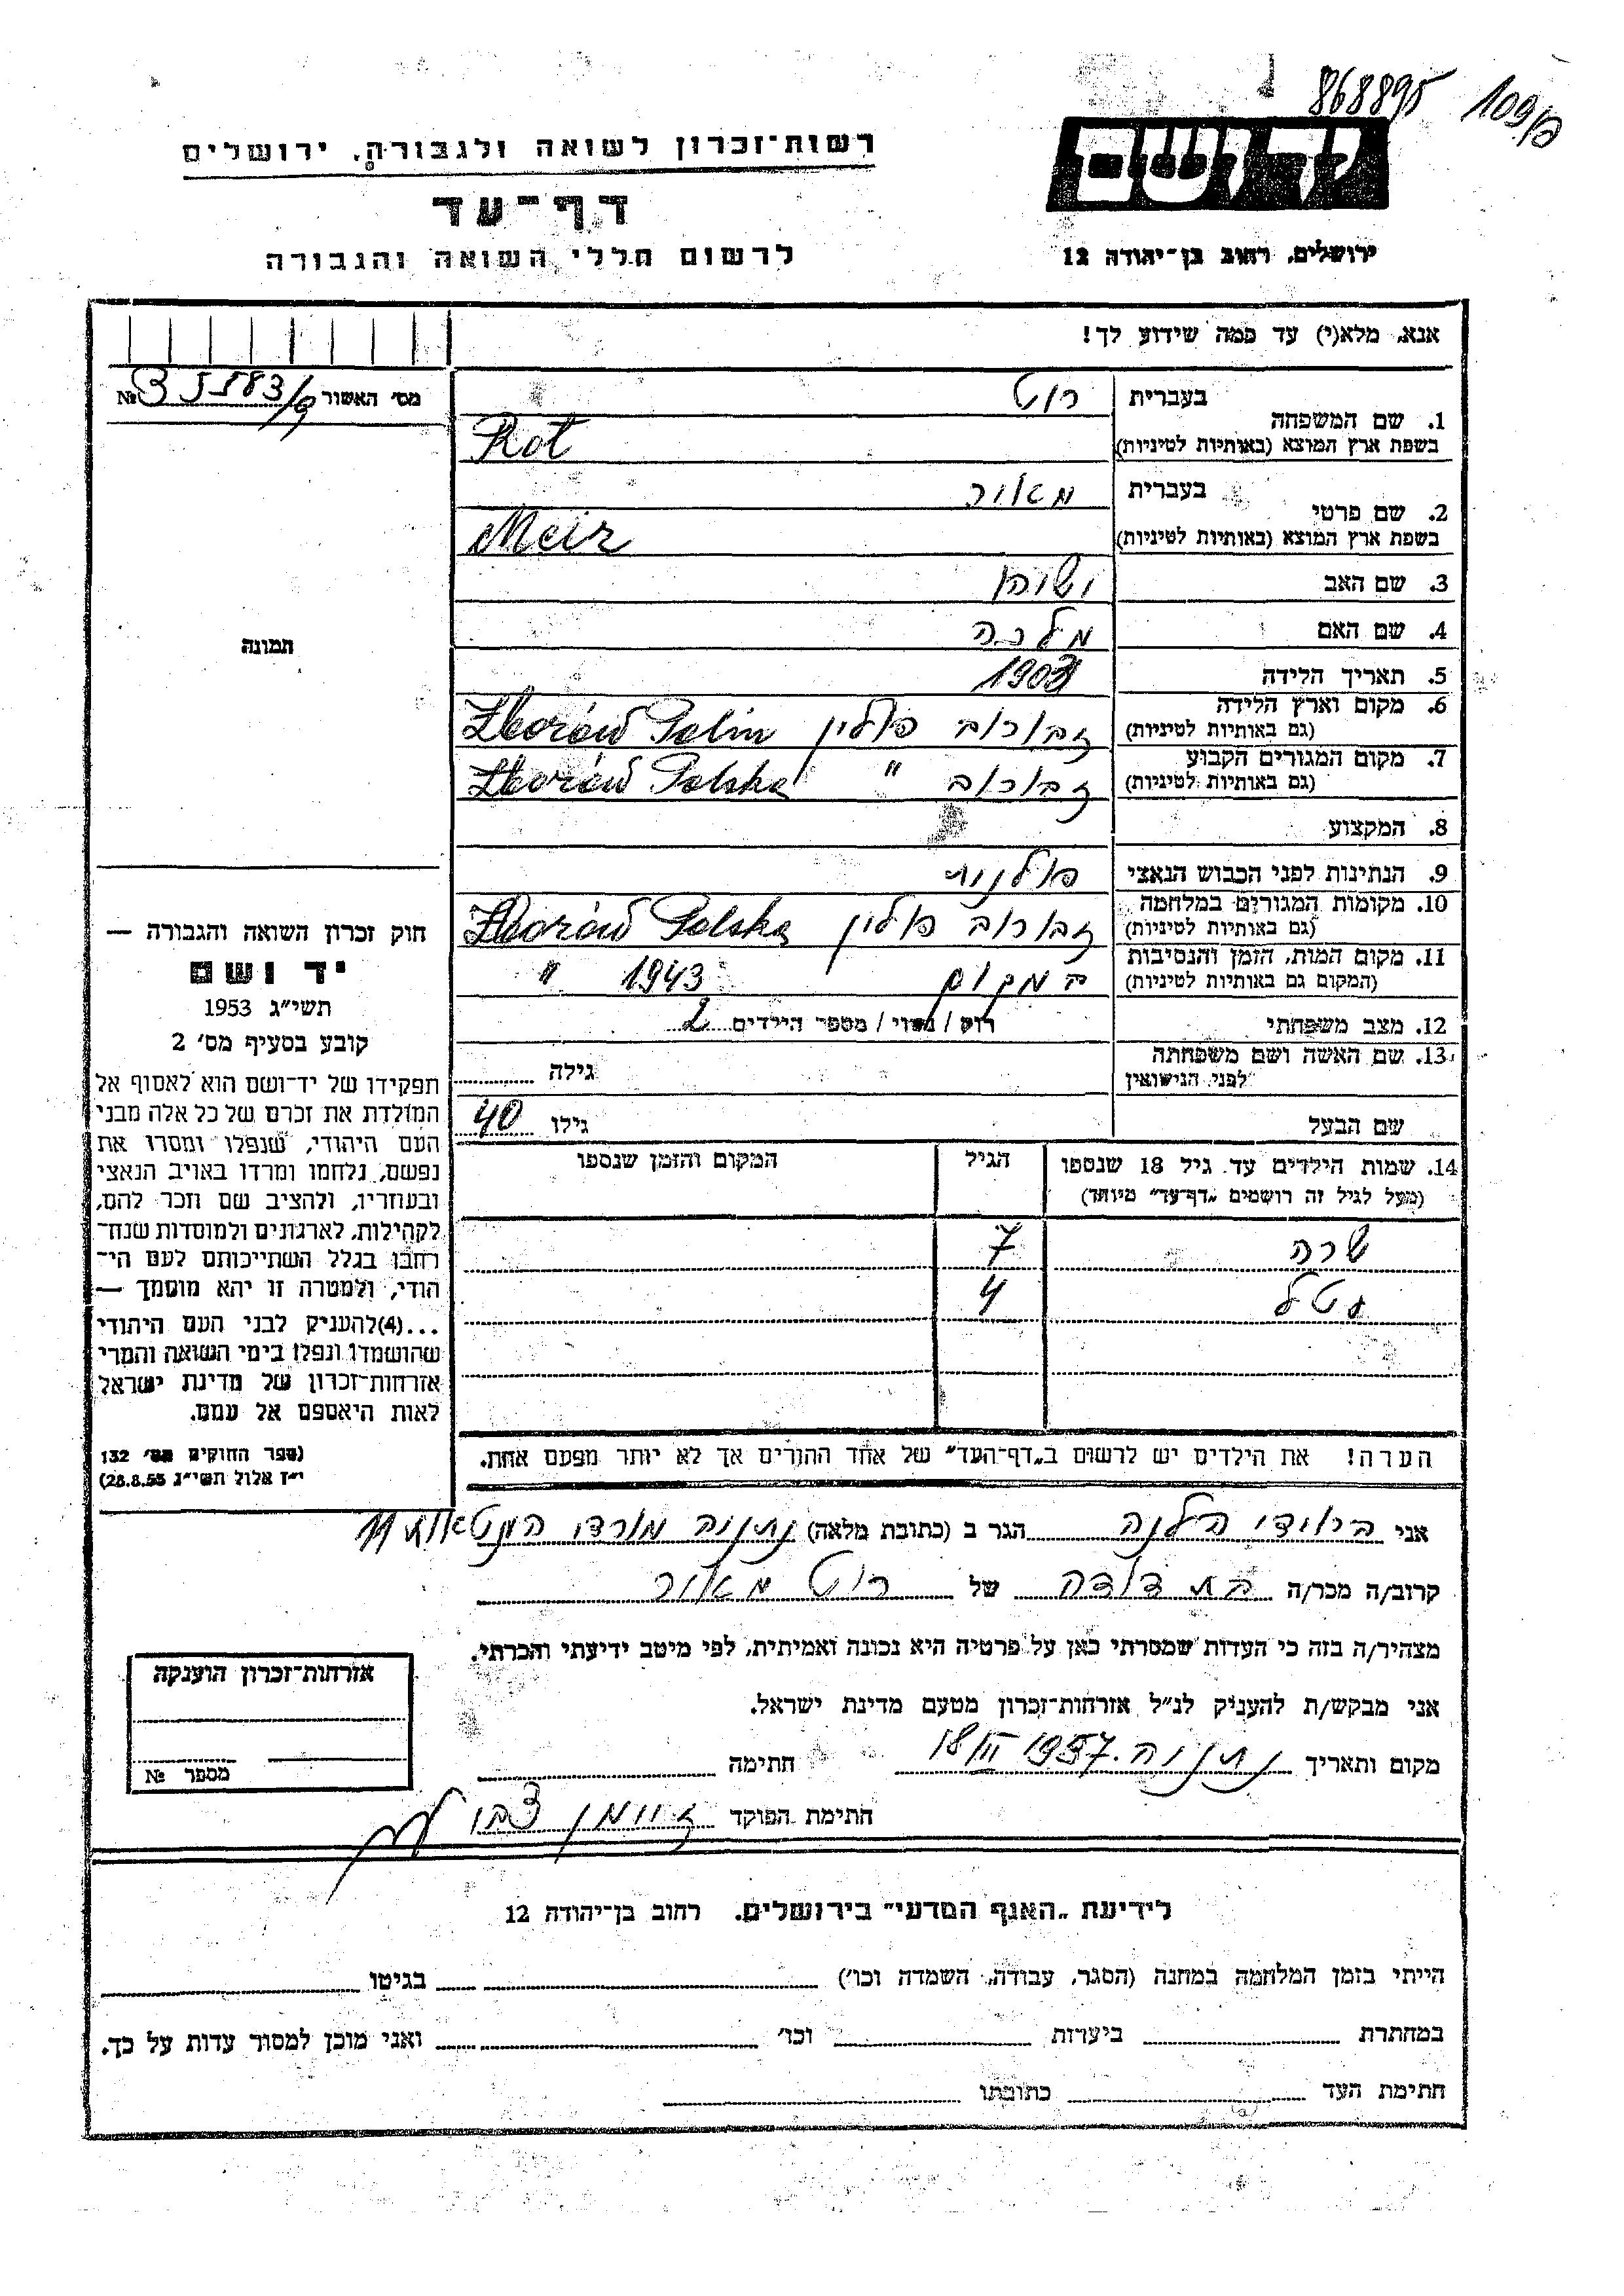 868895 109/6
רשות־זכרון לשואה ולגבורה, ירושלים
דף־עד
לרשום חללי השואה והגבורה
ירושלים, רחוב בן־יהודה 12
אנא, מלא(י) עד כמה שידוע לך!
מס׳ האשור №
1. שם המשפחה בעברית רוט
בשפת ארץ המוצא (באותיות לטיניות) Rot
2. שם פרטי בעברית מאיר
בשפת ארץ המוצא (באותיות לטיניות) Meir
3. שם האב
4. שם האם מלכה
5. תאריך הלידה 1903
6. מקום וארץ הלידה (גם באותיות לטיניות) זבורוב פולין Zborów Polin
7. מקום המגורים הקבוע (גם באותיות לטיניות) זבורוב " Zborów Polska
8. המקצוע
9. הנתינות לפני הכבוש הנאצי פולנית
10. מקומות המגורים במלחמה (גם באותיות לטיניות) זבורוב פולין Zborów Polska
11. מקום המות, הזמן והנסיבות (המקום גם באותיות לטיניות) המקום 1943 "
12. מצב משפחתי רוק / נשוי / מספר הילדים 2
13. שם האשה ושם משפחתה לפני הנישואין גילה
שם הבעל גילו 40
14. שמות הילדים עד גיל 18 שנספו הגיל המקום והזמן שנספו
(מעל לגיל זה רושמים „דף־עד” מיוחד)
שרה 7
4
הערה! את הילדים יש לרשום ב„דף־העד” של אחד ההורים אך לא יותר מפעם אחת.
תמונה
חוק זכרון השואה והגבורה —
יד ושם
תשי״ג 1953
קובע בסעיף מס׳ 2
תפקידו של יד־ושם הוא לאסוף אל
המולדת את זכרם של כל אלה מבני
העם היהודי, שנפלו ומסרו את
נפשם, נלחמו ומרדו באויב הנאצי
ובעוזריו, ולהציב שם וזכר להם,
לקהילות, לארגונים ולמוסדות שנח־
רחבו בגלל השתייכותם לעם הי־
הודי, ולמטרה זו יהא מוסמך —
...(4)להעניק לבני העם היהודי
שהושמדו ונפלו בימי השואה והמרי
אזרחות־זכרון של מדינת ישראל
לאות היאספם אל עמם.
(ספר החוקים מס׳ 132
י״ז אלול תשי״ג 28.8.53)
אני הלנה הגר ב (כתובת מלאה) נתניה 11
קרוב/ה מכר/ה בת דודה של רוט מאיר
מצהיר/ה בזה כי העדות שמסרתי כאן על פרטיה היא נכונה ואמיתית, לפי מיטב ידיעתי והכרתי.
אני מבקש/ת להעניק לנ״ל אזרחות־זכרון מטעם מדינת ישראל.
מקום ותאריך נתניה 18/II 1957. חתימה
חתימת הפוקד
אזרחות־זכרון הוענקה
מספר №
לידיעת „האגף המדעי” בירושלים, רחוב בן־יהודה 12
הייתי בזמן המלחמה במחנה (הסגר, עבודה, השמדה וכו׳) בגיטו
במחתרת ביערות וכו׳ ואני מוכן למסור עדות על כך.
חתימת העד כתובתו